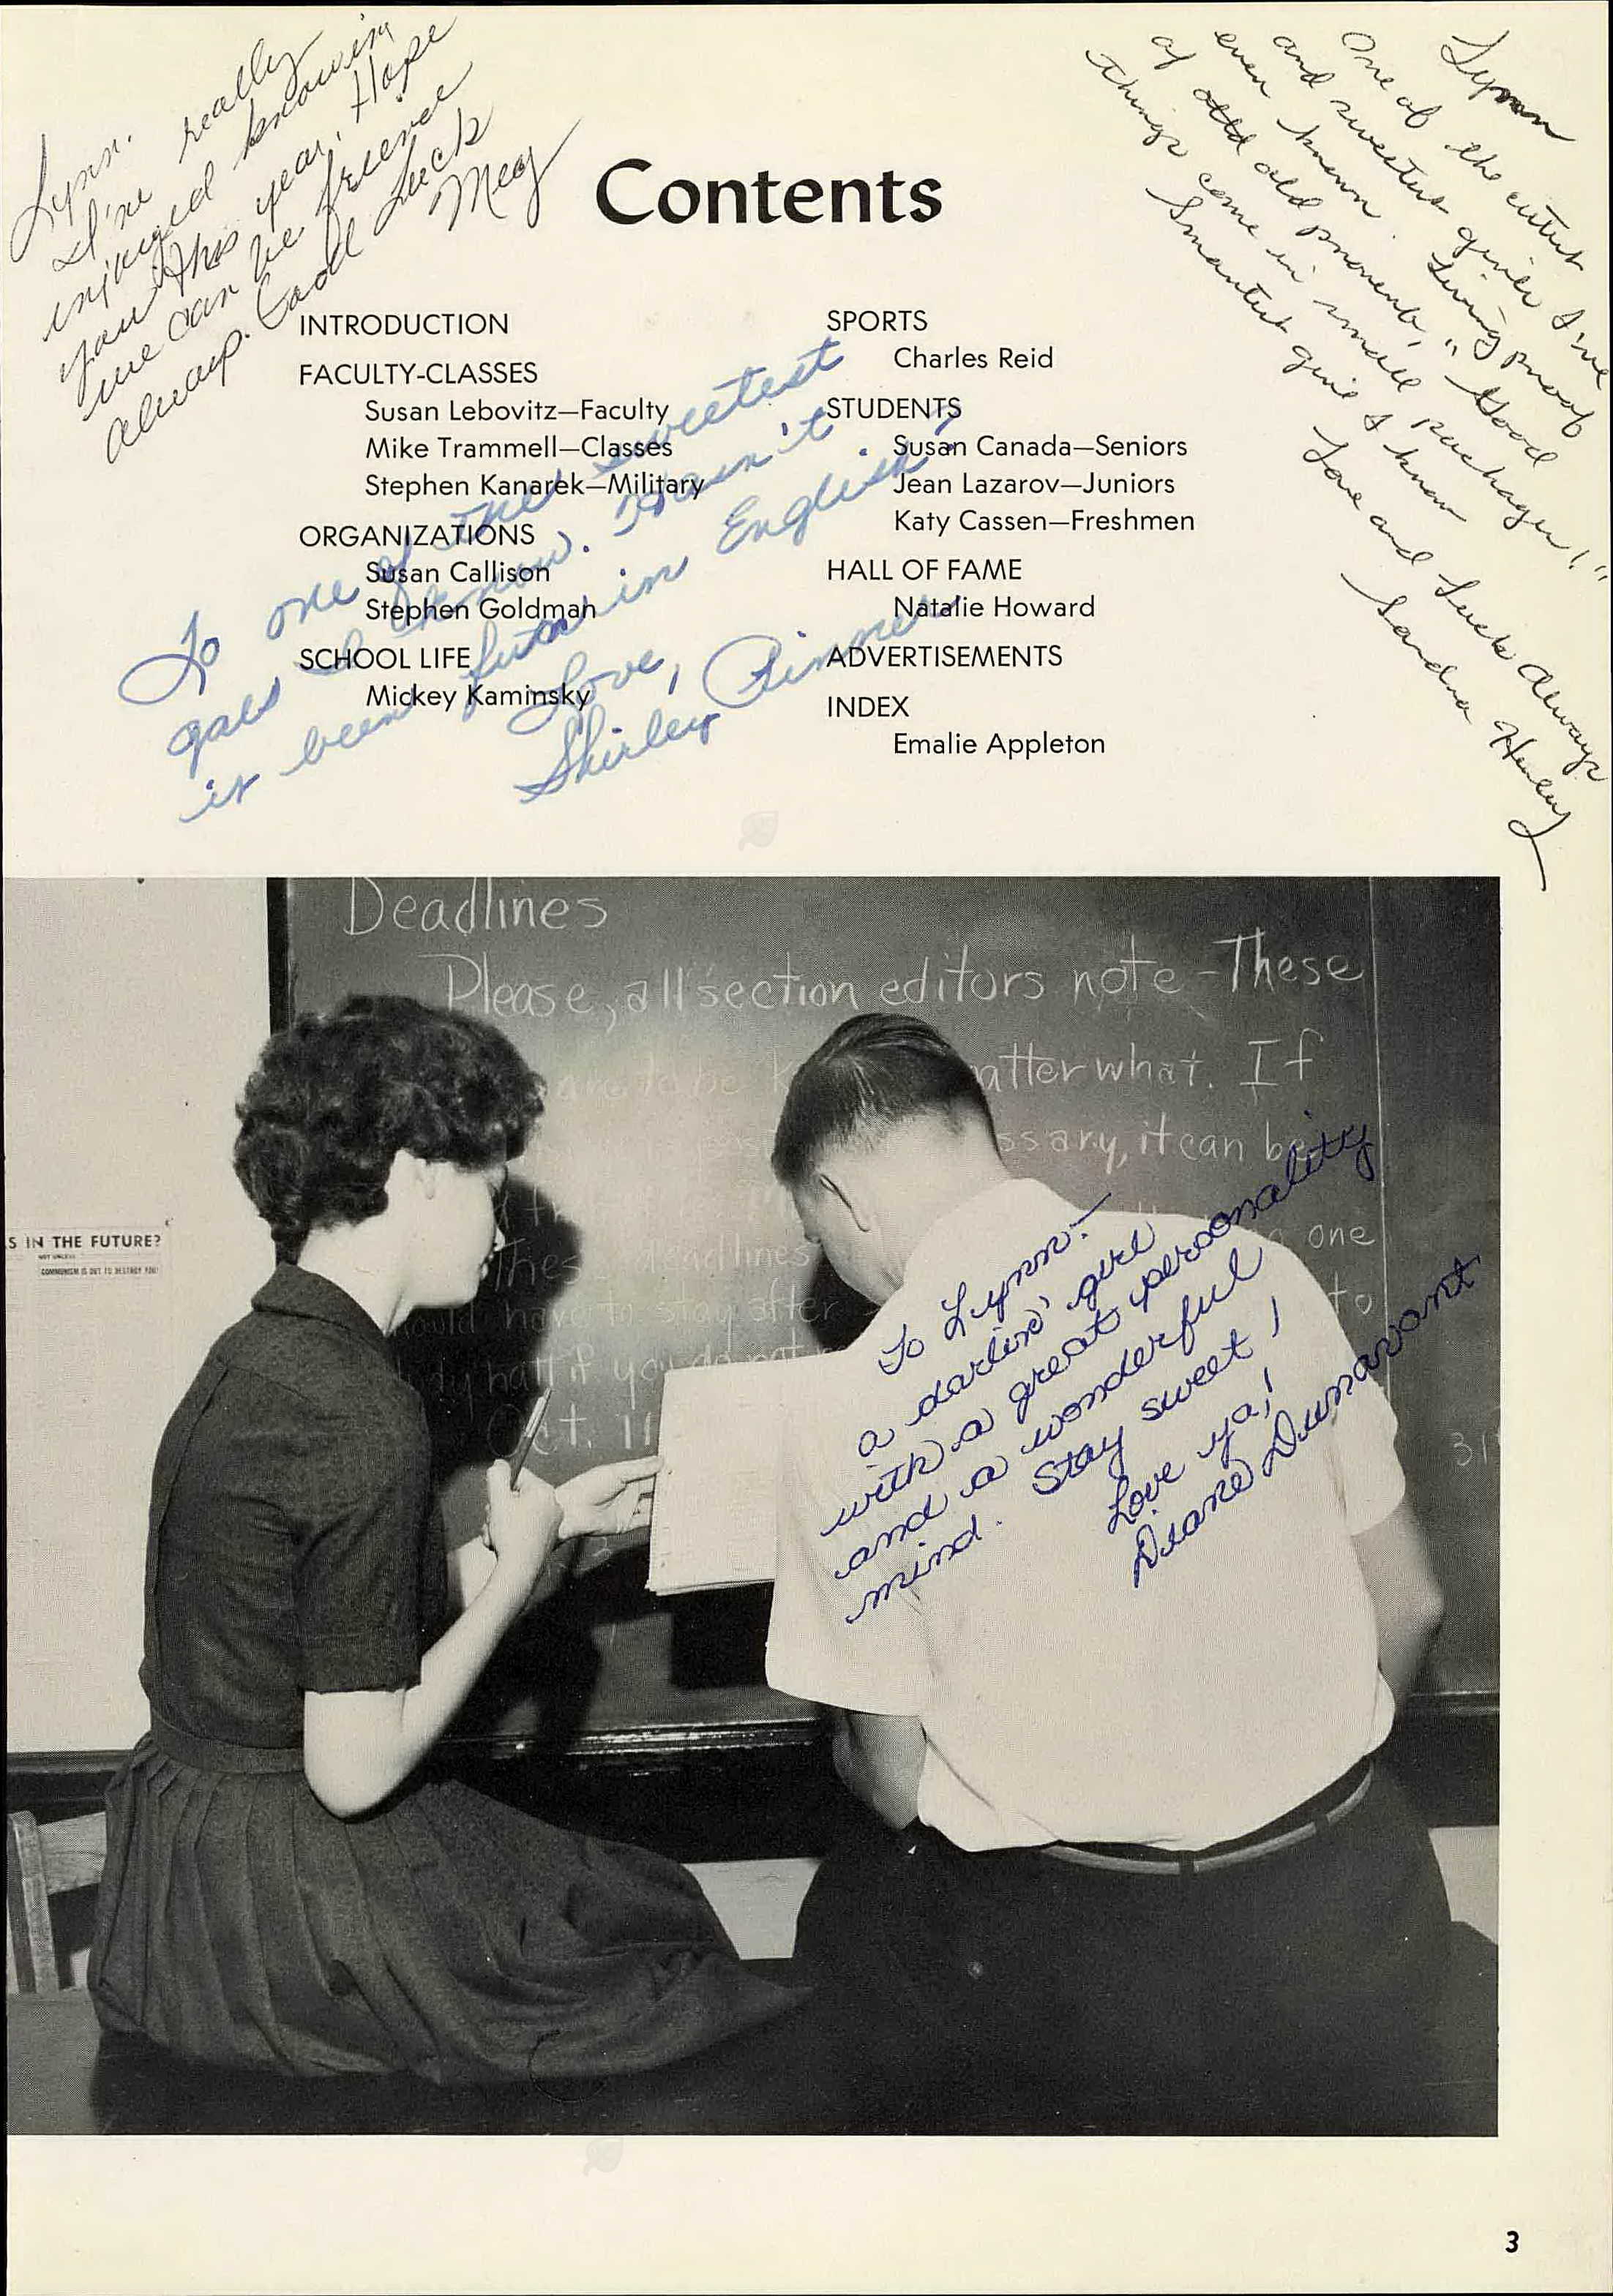 Lynn.
I've really
enjoyed knowin
you this year. Hope
we can be friends
always. Good Luck
Meg
Lynn
One of the cutest
and sweetest girls I've
ever known. Living proof
of old old proverb, "Good
things come in small packages!"
Smartest girl I know
Love and Luck Always
Sandra Henley
Contents
INTRODUCTION
FACULTY-CLASSES
Susan Lebovitz—Faculty
Mike Trammell—Classes
Stephen Kanarek—Military
ORGANIZATIONS
Susan Callison
Stephen Goldman
SCHOOL LIFE
Mickey Kaminsky
SPORTS
Charles Reid
STUDENTS
Susan Canada—Seniors
Jean Lazarov—Juniors
Katy Cassen—Freshmen
HALL OF FAME
Natalie Howard
ADVERTISEMENTS
INDEX
Emalie Appleton
To one of the sweetest
gals I know. Hasn't
it been fun in English?
Love,
Shirley Rinner
Deadlines
Please, all section editors note - These
are to be matter what. If
ssary, it can be
one
These deadlines
would have to stay after to
study hall if you do not
Oct. 11
S IN THE FUTURE?
NOT UNLESS
COMMUNISM IS OUT TO DESTROY YOU!
To Lynn:—
a darlin' girl
with a great personality
and a wonderful
mind. Stay sweet!
Love ya,!
Diane Dunavant
3